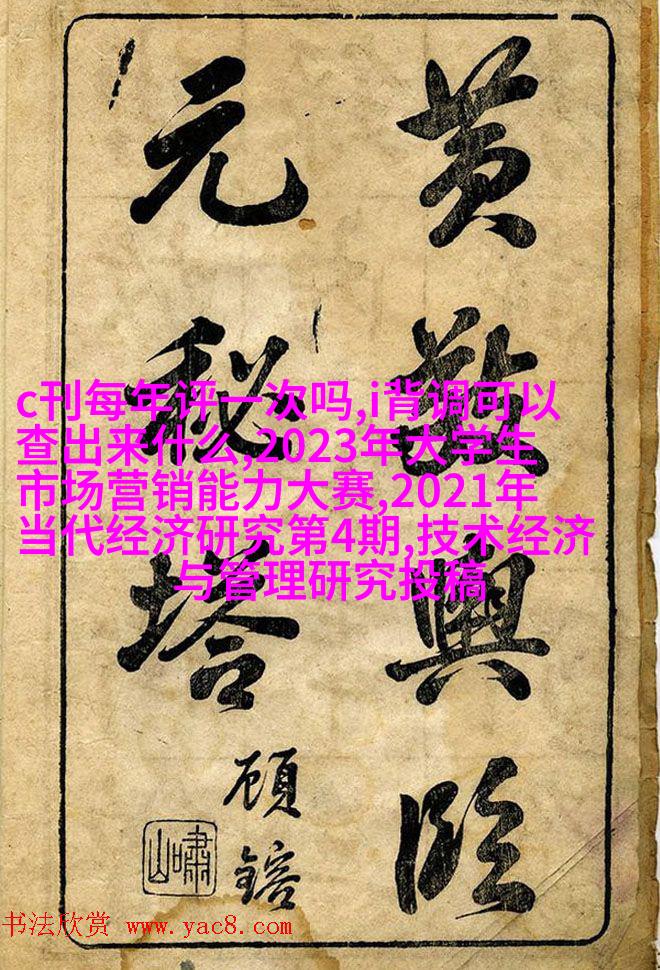 黃敬輿臨
元秘塔
顧鎔
嘯山
c刊每年评一次吗,i背调可以
查出来什么,2023年大学生
市场营销能力大赛,2021年
当代经济研究第4期,技术经济
与管理研究投稿
书法欣赏 www.yac8.com